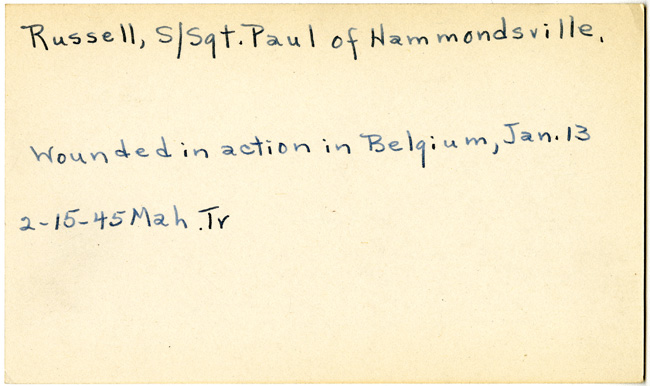 Russell, S/Sgt. Paul of Hammondsville.
Wounded in action in Belgium, Jan. 13
2-15-45 Mah. Tr